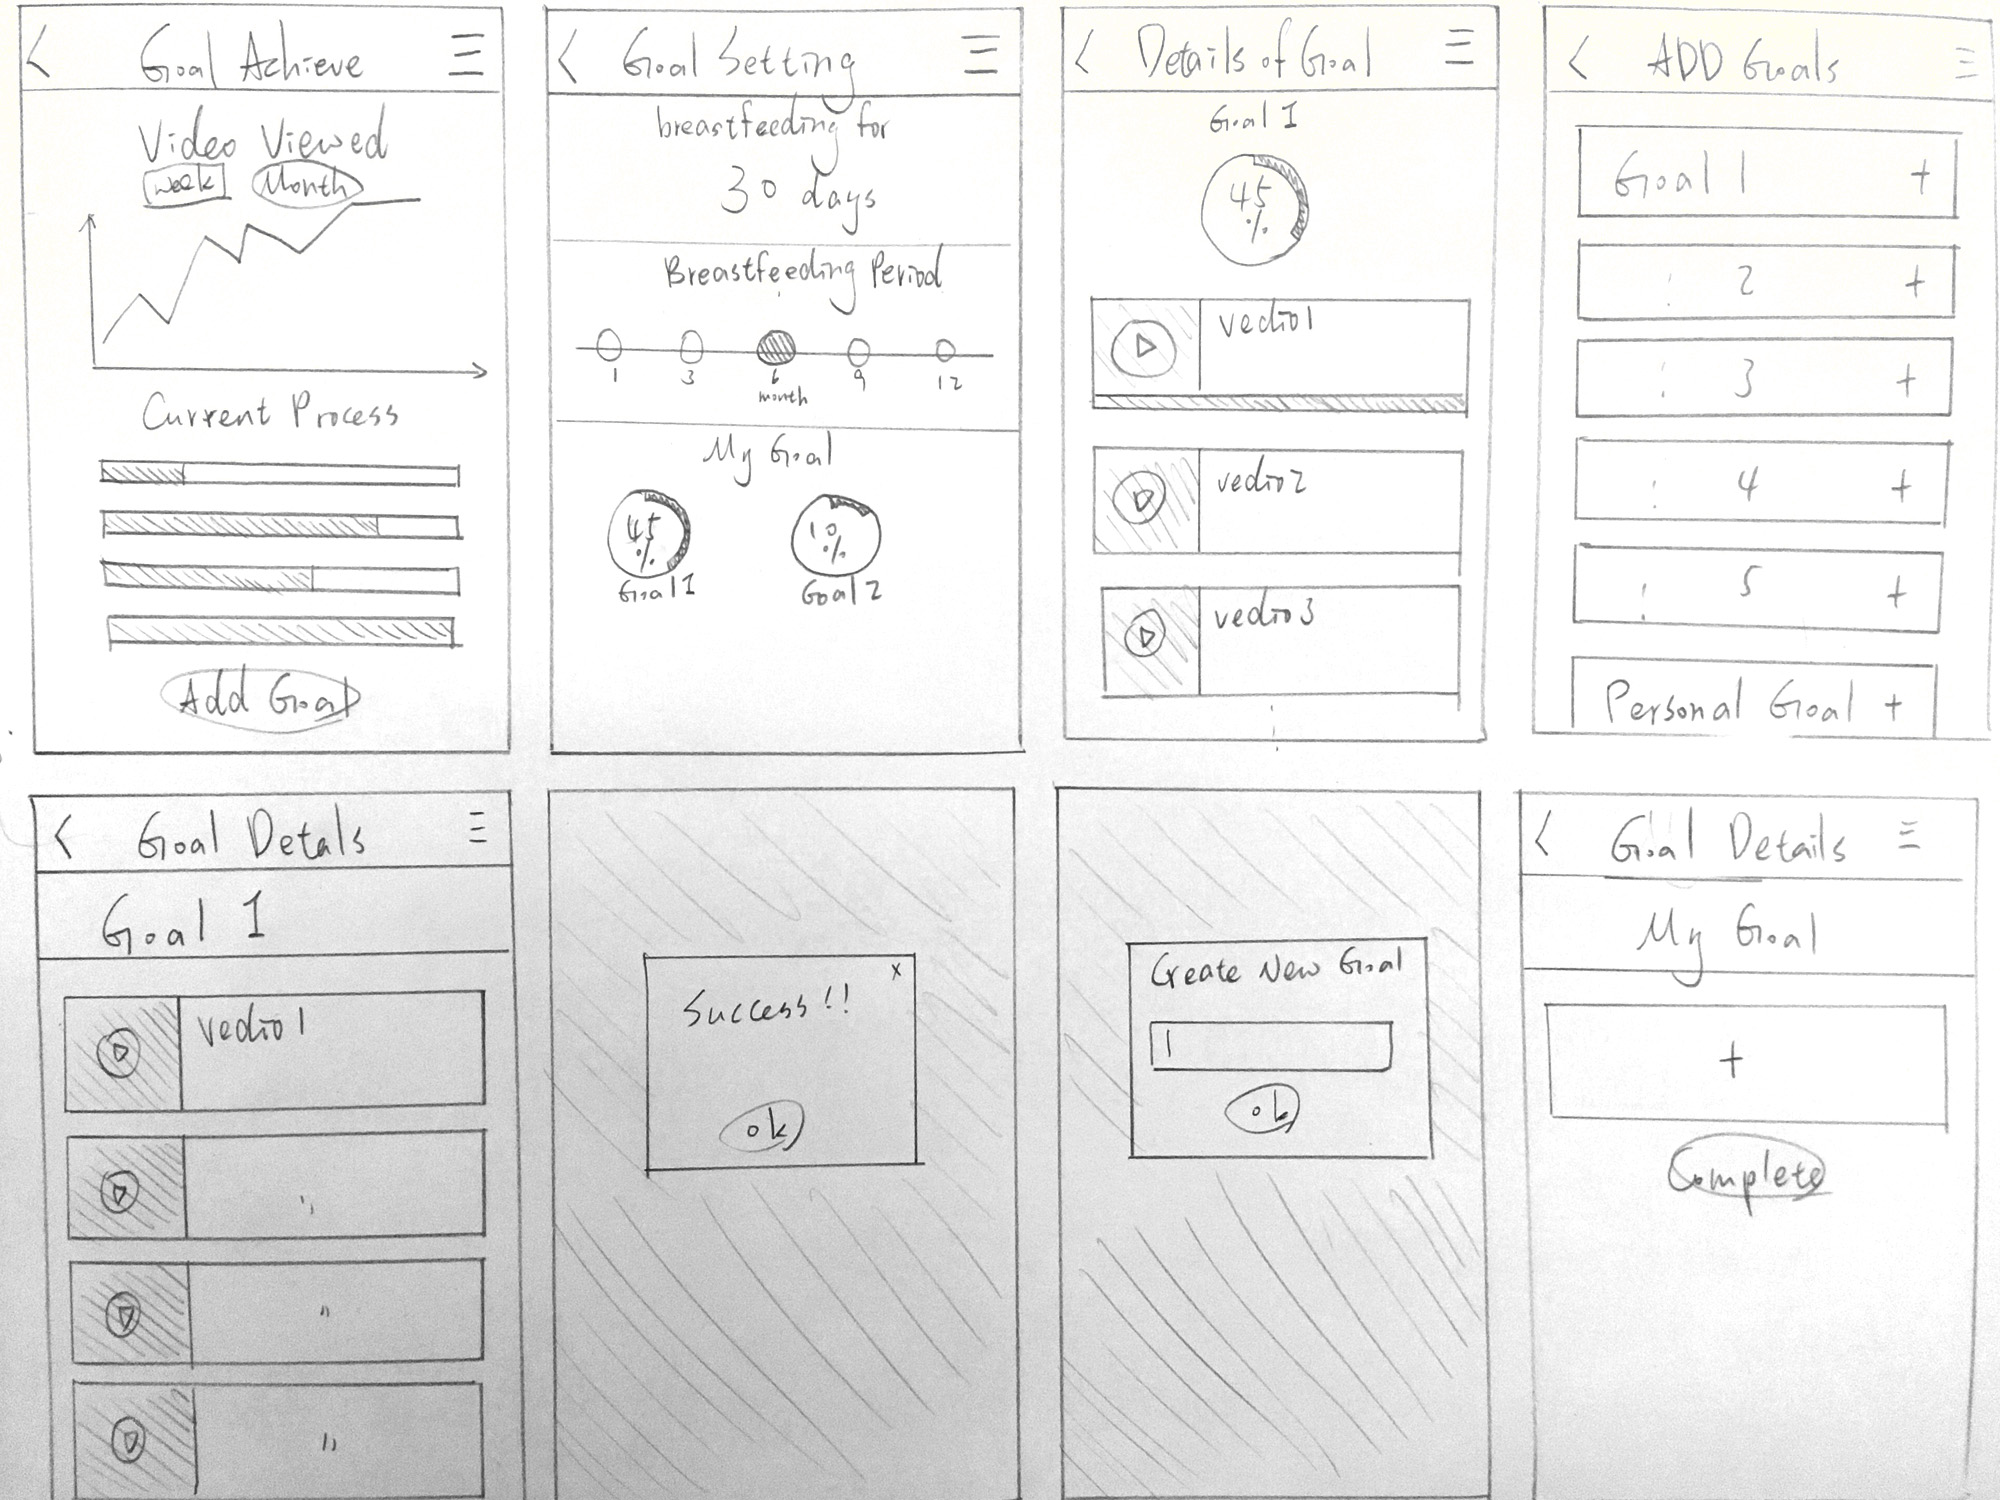 < Goal Achieve
Video Viewed
week Month
Current Process
Add Goal
< Goal Setting
breastfeeding for
30 days
Breastfeeding Period
1 3 6 9 12
month
My Goal
45 % 10 %
Goal 1 Goal 2
< Details of Goal
Goal 1
45
%
vedio1
vedio2
vedio3
< ADD Goals
Goal 1 +
2 +
3 +
4 +
5 +
Personal Goal +
< Goal Detals
Goal 1
vedio1
"
"
"
x
Success!!
ok
Create New Goal
ok
< Goal Details
My Goal
+
Complete